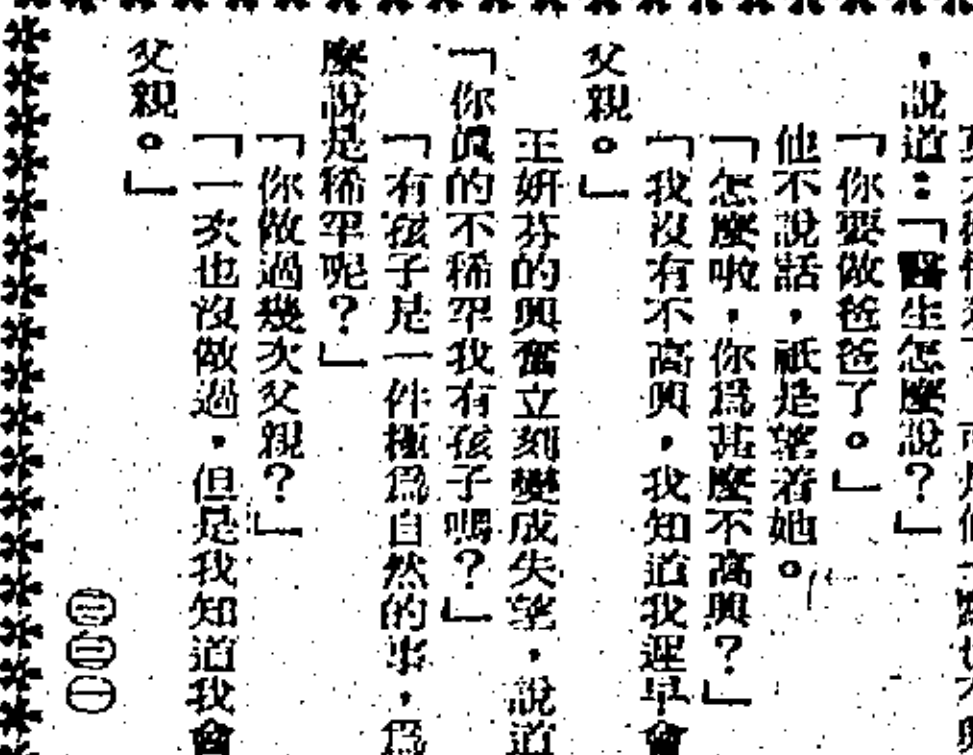 ，說道：「醫生怎麼說？」
「你要做爸爸了。」
他不說話，祇是望着她。
「怎麼啦，你爲甚麼不高興？」
「我沒有不高興，我知道我遲早會
父親。」
王妍芬的興奮立刻變成失望，說道
「你眞的不稀罕我有孩子嗎？」
「有孩子是一件極爲自然的事，爲
麼說是稀罕呢？」
「你做過幾次父親？」
「一次也沒做過，但是我知道我會
父親。」